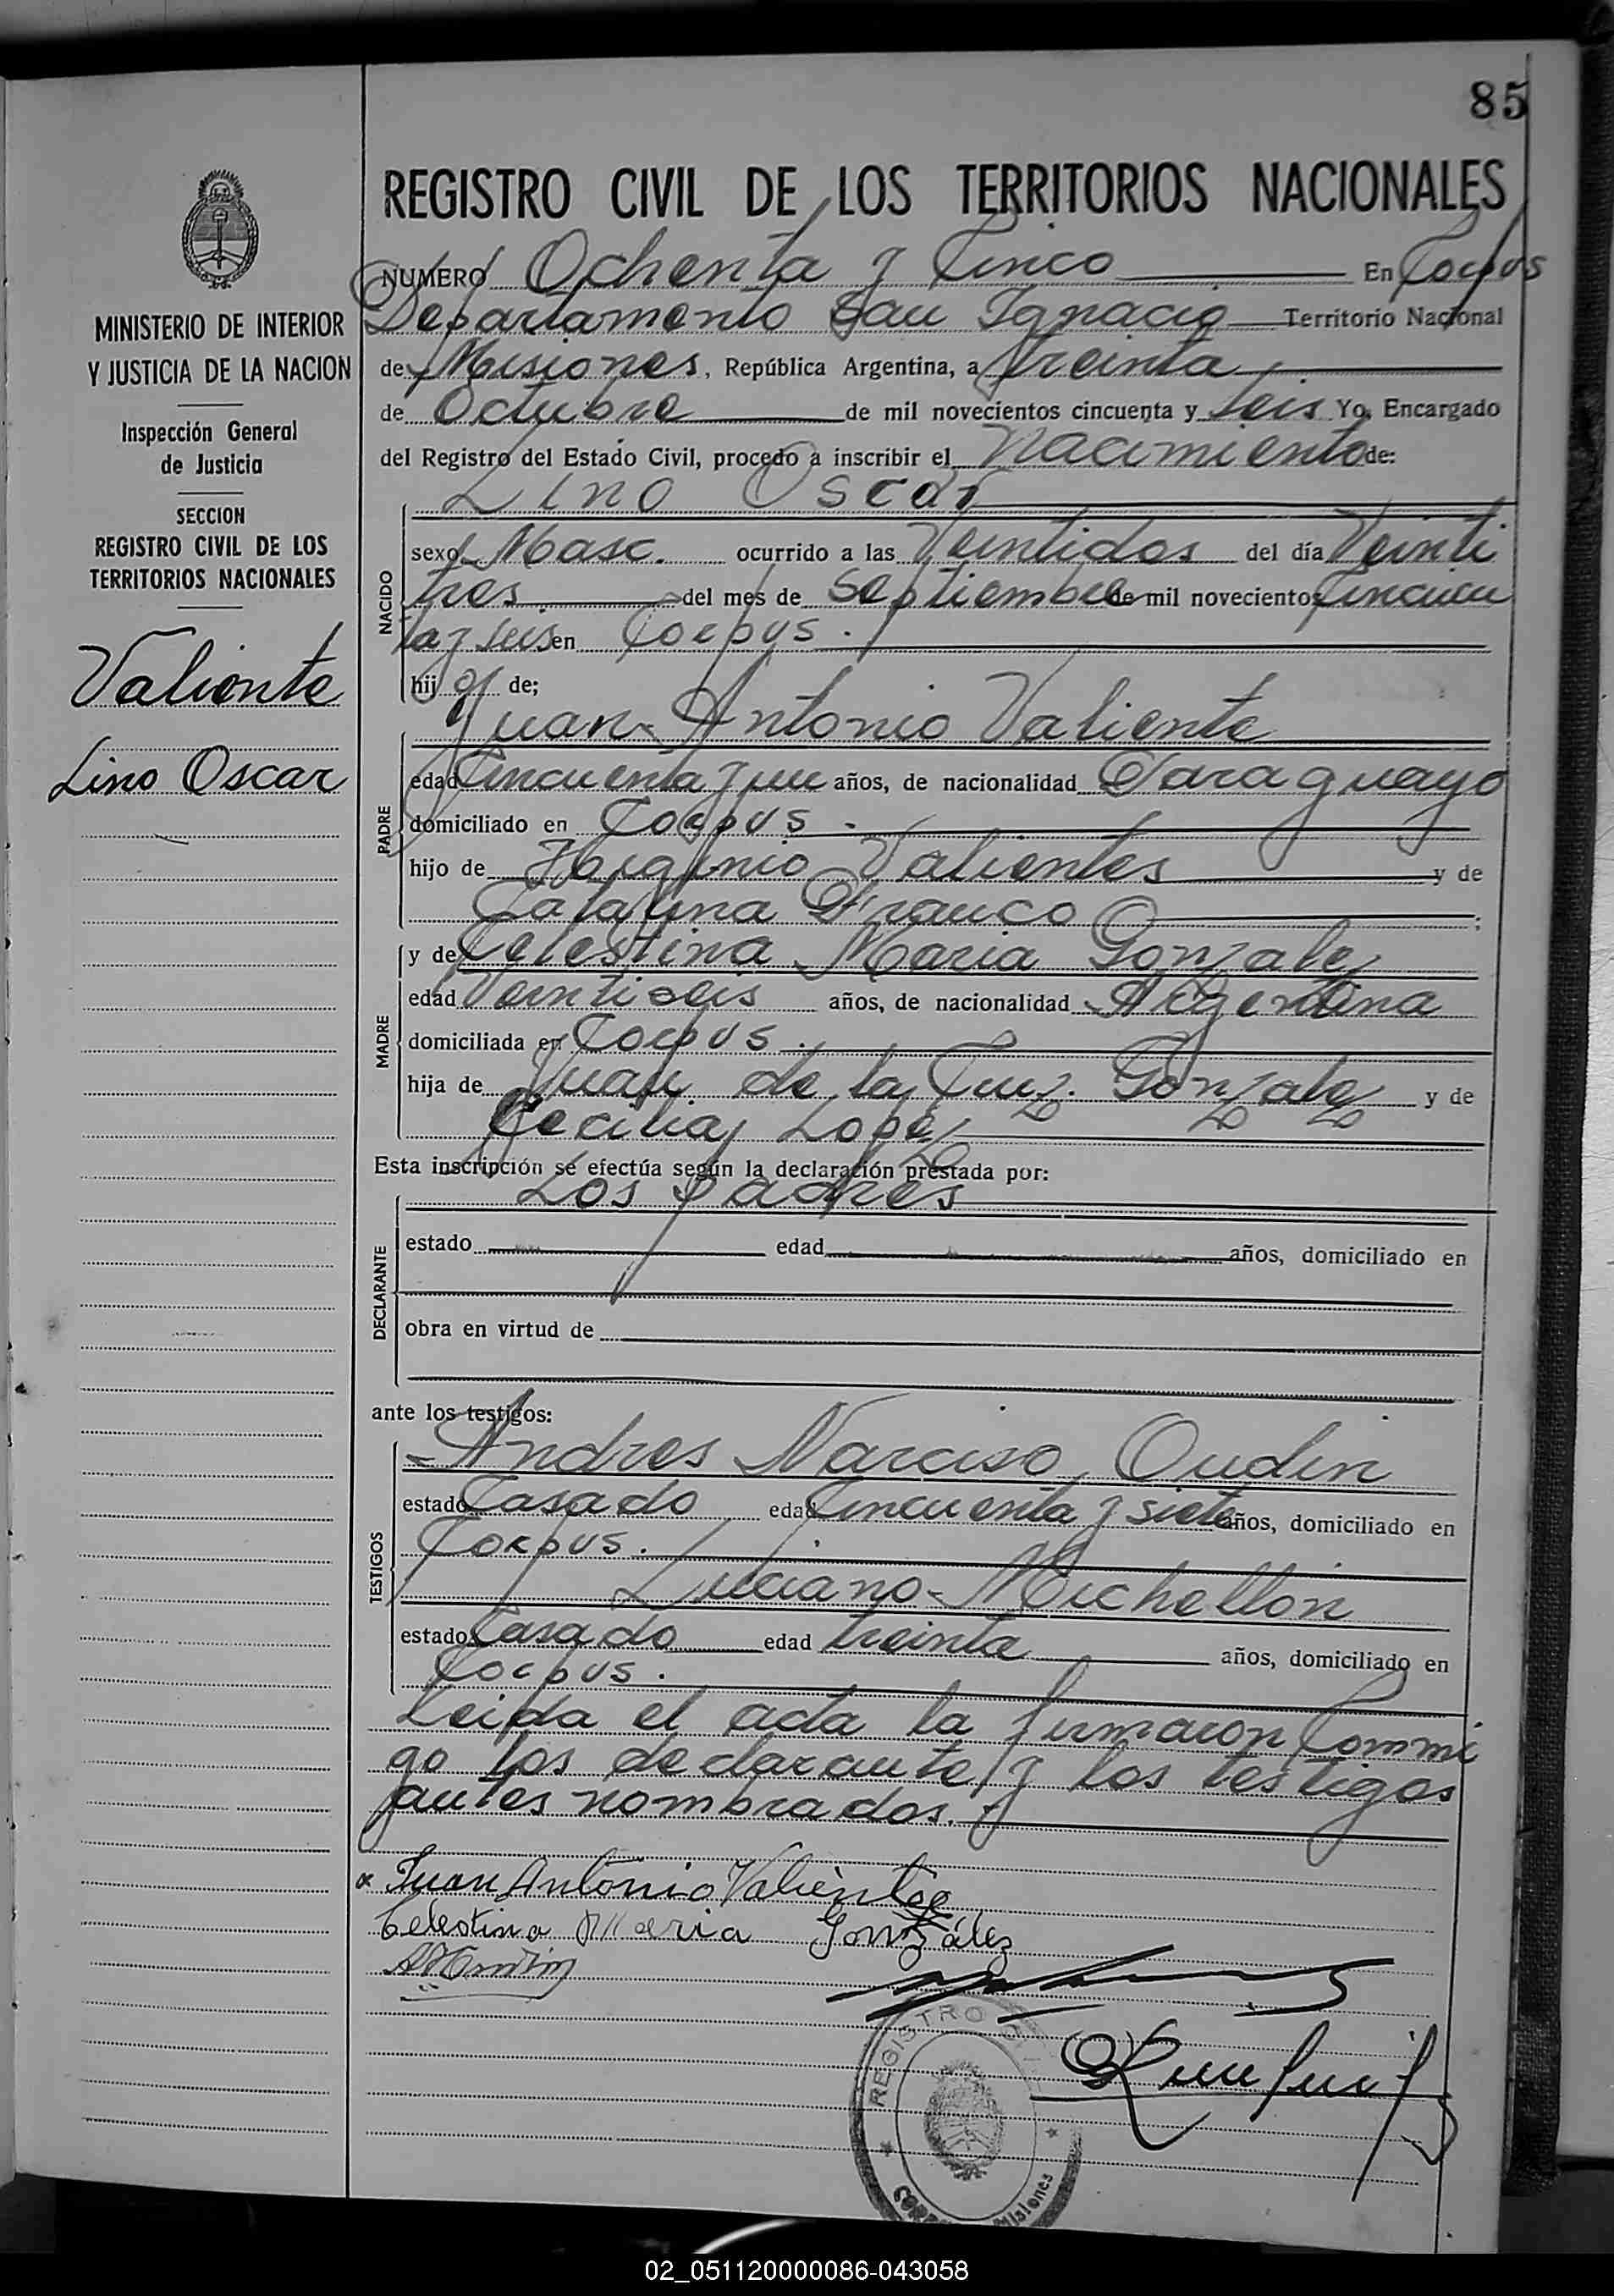 85
REGISTRO CIVIL DE LOS TERRITORIOS NACIONALES
NUMERO Ochenta y Cinco En Corpus
Departamento San Ignacio Territorio Nacional
de Misiones, República Argentina, a treinta
de Octubre de mil novecientos cincuenta y seis Yo, Encargado
del Registro del Estado Civil, procedo a inscribir el Nacimiento de:
Lino Oscar
NACIDO
sexo Masc. ocurrido a las Veintidos del día Veinti
tres del mes de Septiembre de mil novecientos Cincuen
ta y seis en Corpus.
hijo de;
Juan Antonio Valiente
PADRE
edad Cincuenta y un años, de nacionalidad Paraguayo
domiciliado en Corpus.
hijo de Higinio Valientes y de
Catalina Franco;
y de Celestina Maria Gonzalez
MADRE
edad Veintiseis años, de nacionalidad Argentina
domiciliada en Corpus.
hija de Juan de la Cruz Gonzalez y de
Cecilia Lopez
Esta inscripción se efectúa según la declaración prestada por:
Los padres
DECLARANTE
estado edad años, domiciliado en
obra en virtud de
ante los testigos:
TESTIGOS
Andres Narciso Oudin
estado Casado edad Cincuenta y siete años, domiciliado en
Corpus.
Luciano Michellon
estado Casado edad treinta años, domiciliado en
Corpus.
Leida el acta la firmaron Commi
go los declarante y los testigos
antes nombrados.
Juan Antonio Valiente
Celestina Maria González
REGISTRO
Misiones
MINISTERIO DE INTERIOR
Y JUSTICIA DE LA NACION
Inspección General
de Justicia
SECCION
REGISTRO CIVIL DE LOS
TERRITORIOS NACIONALES
Valiente
Lino Oscar
02_051120000086-043058